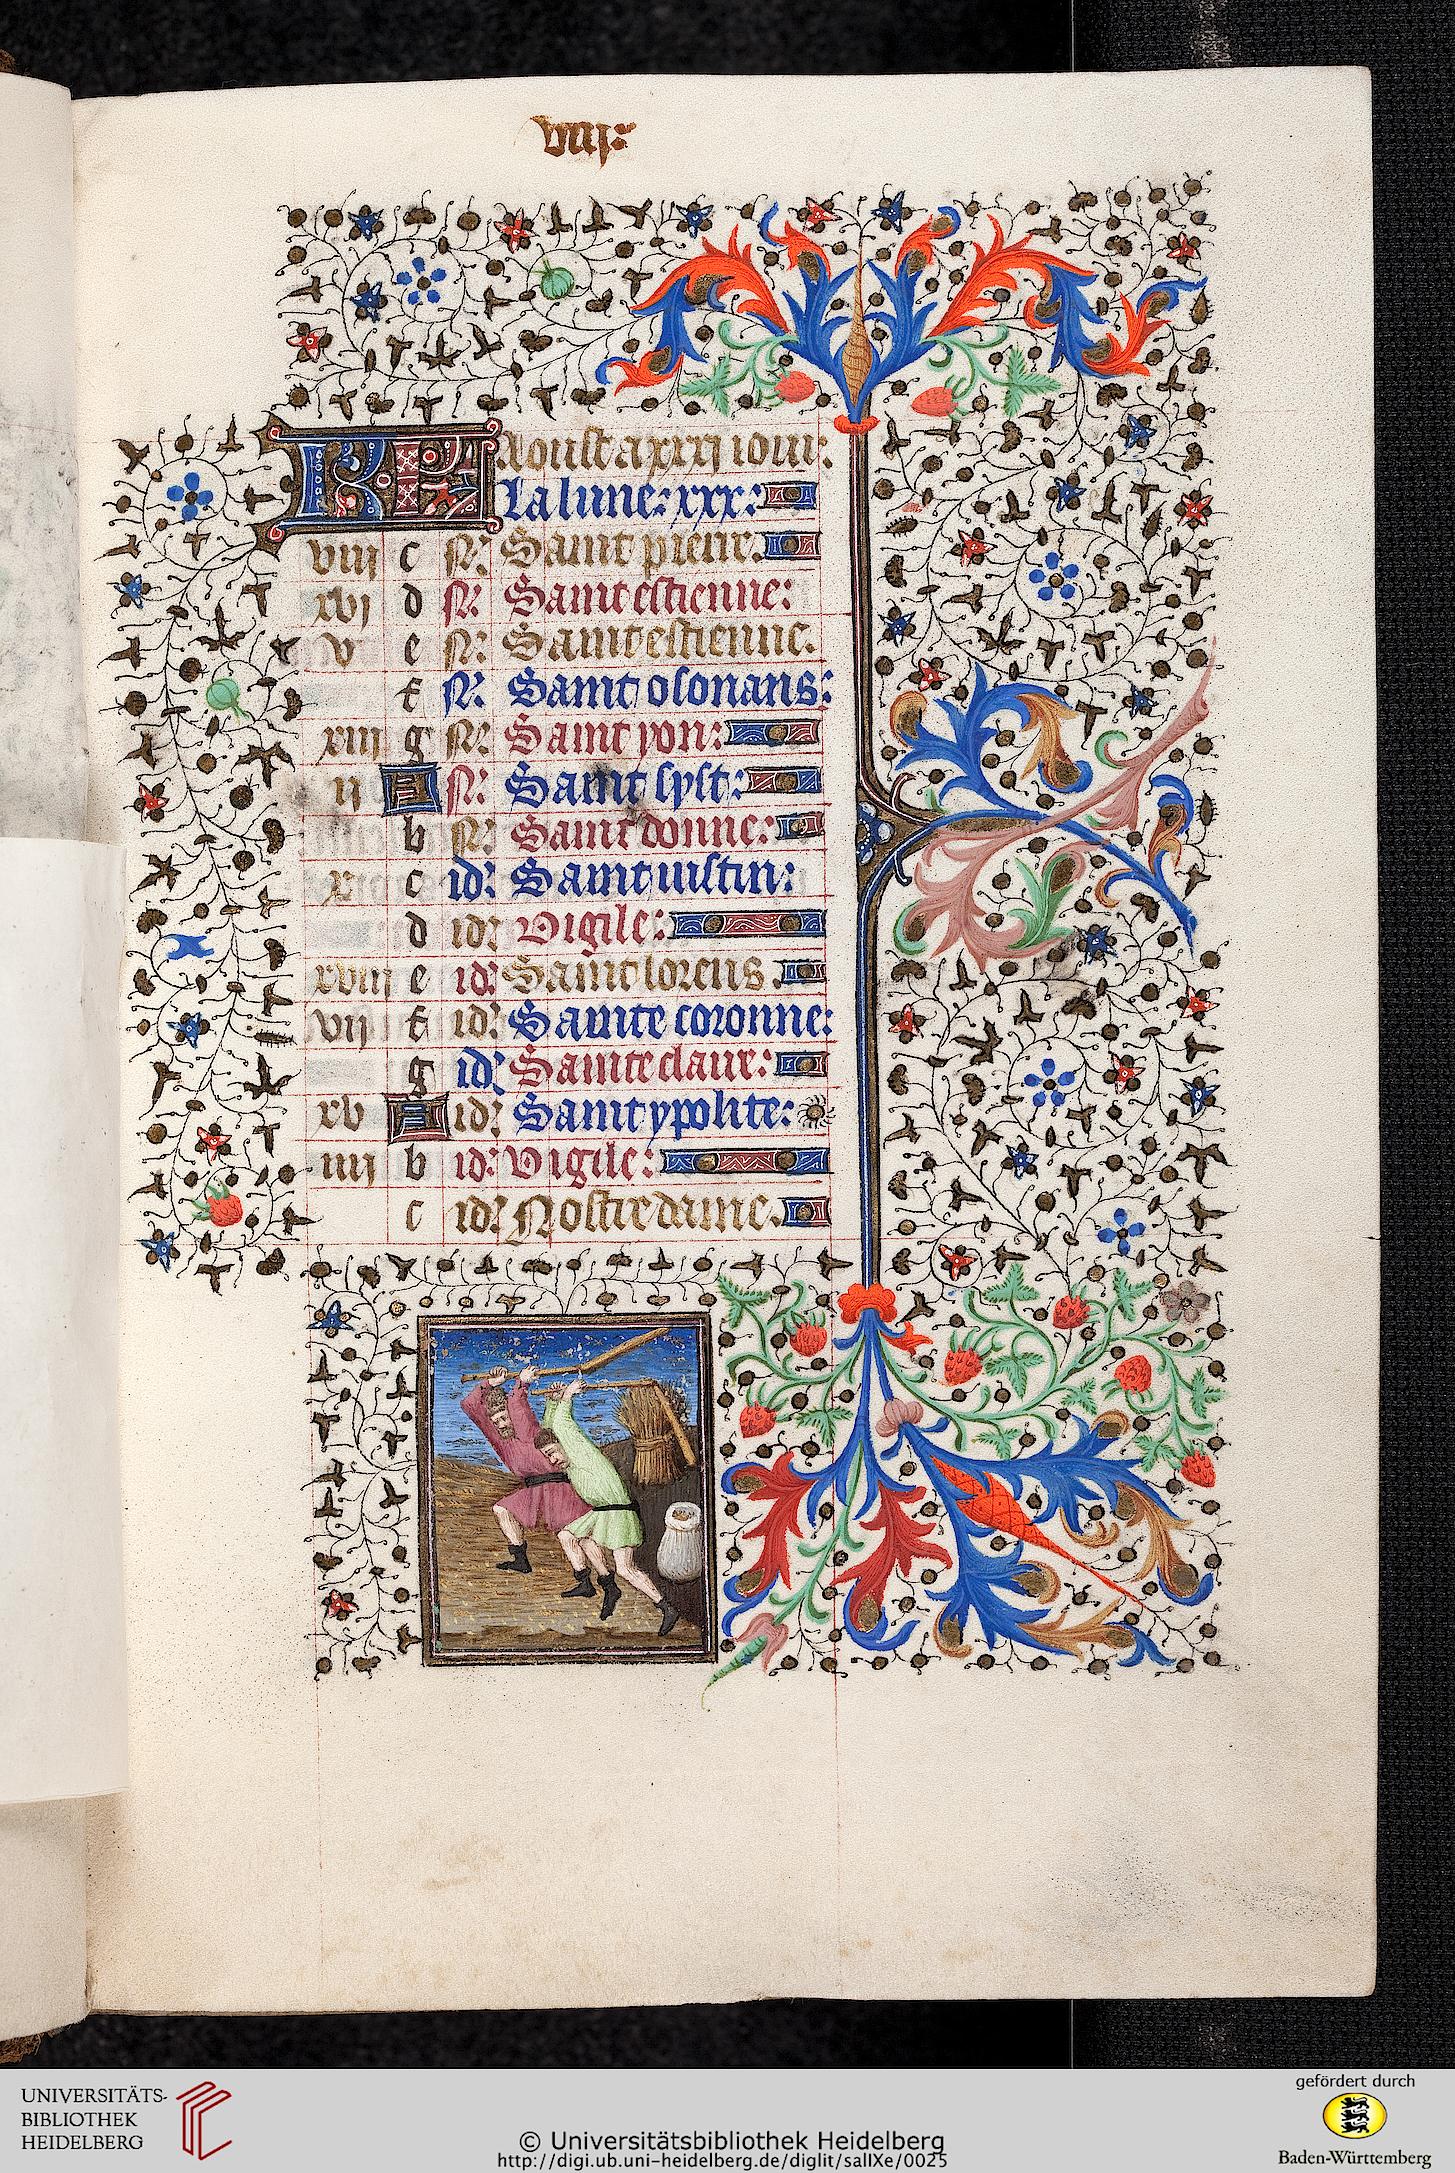 viii:
KL Aoust a xxxj iour:
La lune: xxx:
viij c N: Saint pierre.
xvj d N: Saint estienne:
v e N: Saint estienne.
f N: Saint osonans:
xiij g N: Saint yon:
ij A N: Saint syst:
b N: Saint donne:
x c id: Saint iustin:
d id: Vigile:
xviij e id: Saint lorens
vij f id: Sainte coronne:
g id: Sainte claire:
xv A id: Saint ypolite:
iiij b id: Vigile:
c id: Nostre dame.
UNIVERSITÄTS-
BIBLIOTHEK
HEIDELBERG
© Universitätsbibliothek Heidelberg
http://digi.ub.uni-heidelberg.de/diglit/salIXe/0025
gefördert durch
Baden-Württemberg